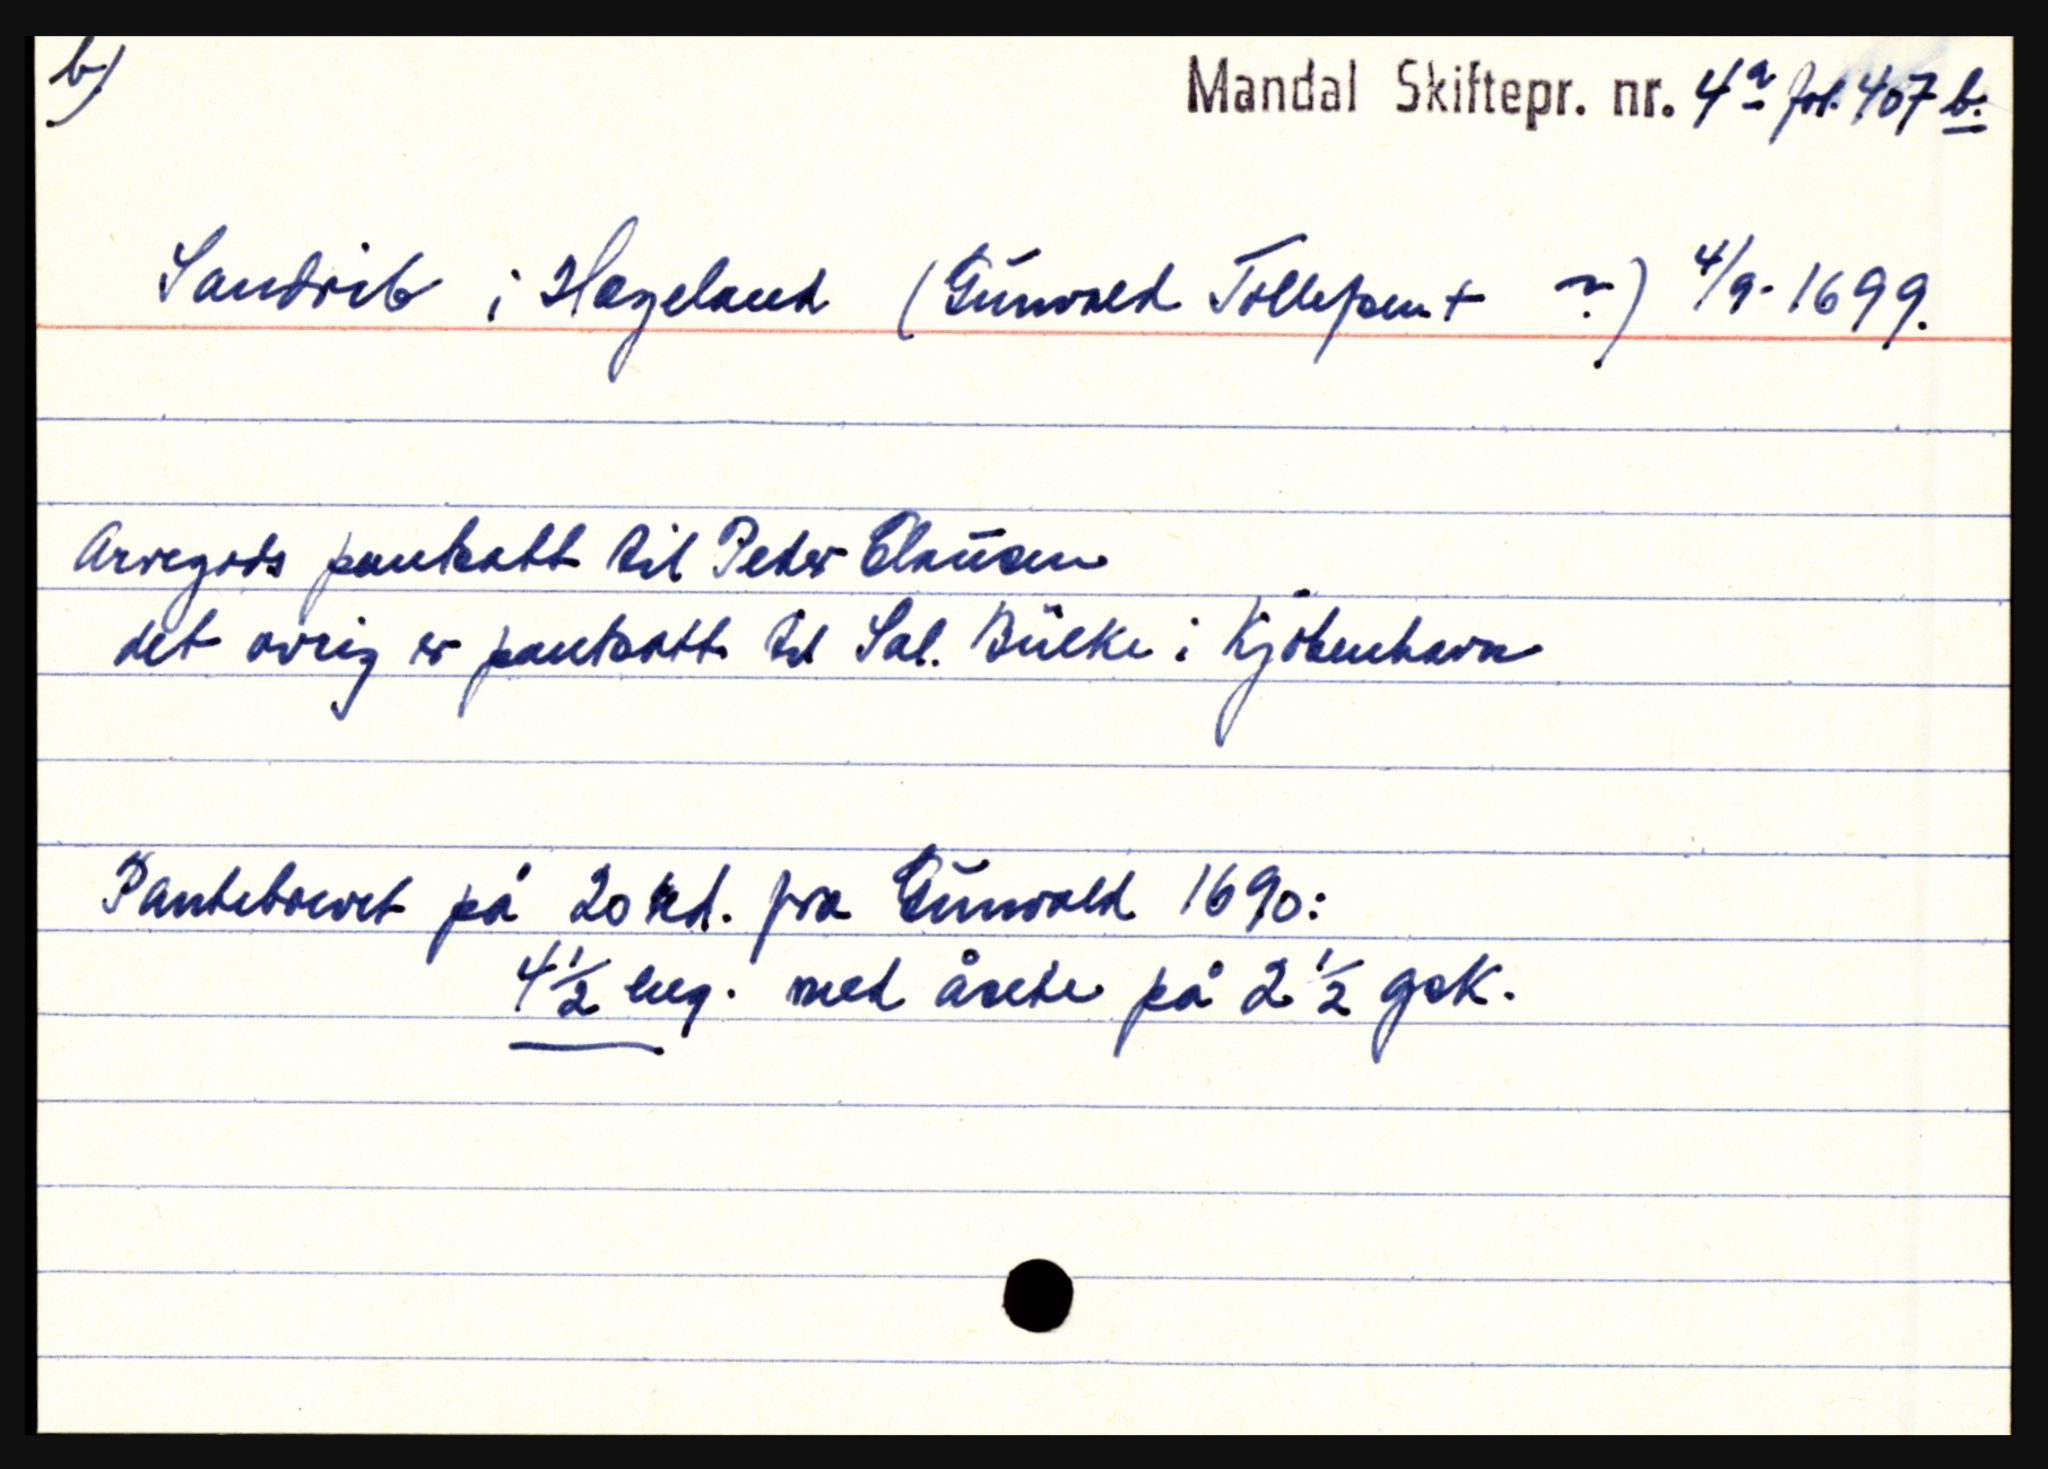 b)
Mandal Skiftepr. nr. 4a fol. 407 b.
Sandrib i Hægeland (Gunvald Tollefsen + ?) 4/9-1699.
Arvegods pantsatt til Peder Clausen
det øvrig er pantsatt til Sal. Bülke i Kjöbenhavn
Pantebrevet på 20 rd. fra Gunvald 1690:
4 1/2 eng. med åsete på 2 1/2 gsk.